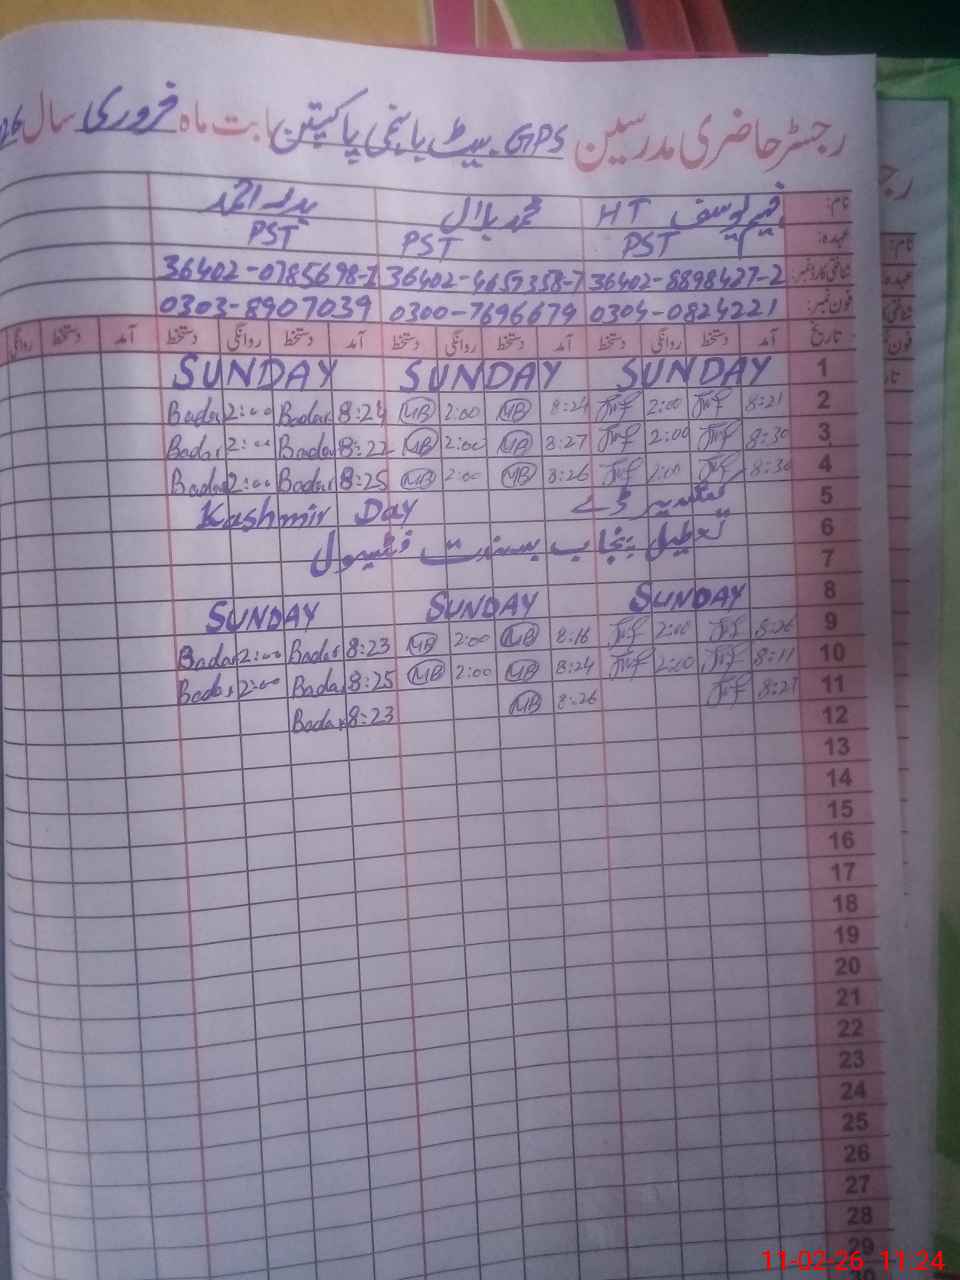 رجسٹر حاضری مدرسین GPS بابت ماہ فروری سال 26
نام: HT محمد بلال
عہدہ: PST PST PST
شناختی کارڈ نمبر: 36402-8898427-2 36402-4657358-7 36402-0785698-1
فون نمبر: 0304-0824221 0300-7696679 0303-8907039
تاریخ آمد دستخط روانگی دستخط آمد دستخط روانگی دستخط آمد دستخط روانگی دستخط آمد دستخط روانگی
1 SUNDAY SUNDAY SUNDAY
2 8:21 2:00 8:24 MB 2:00 MB 8:24 Badar 2:00 Badar
3 8:30 2:00 8:27 MB 2:00 MB 8:22 Badar 2:00 Badar
4 8:30 2:00 8:26 MB 2:00 MB 8:25 Badar 2:00 Badar
5 کشمیر ڈے Kashmir Day
6 تعطیل پنجاب بسنت فیسٹیول
7
8 SUNDAY SUNDAY SUNDAY
9 8:26 2:00 8:16 MB 2:00 MB 8:23 Badar 2:00 Badar
10 8:11 2:00 8:24 MB 2:00 MB 8:25 Badar 2:00 Badar
11 8:27 8:26 MB 8:23 Badar
12
13
14
15
16
17
18
19
20
21
22
23
24
25
26
27
28
29
11-02-26 11:24